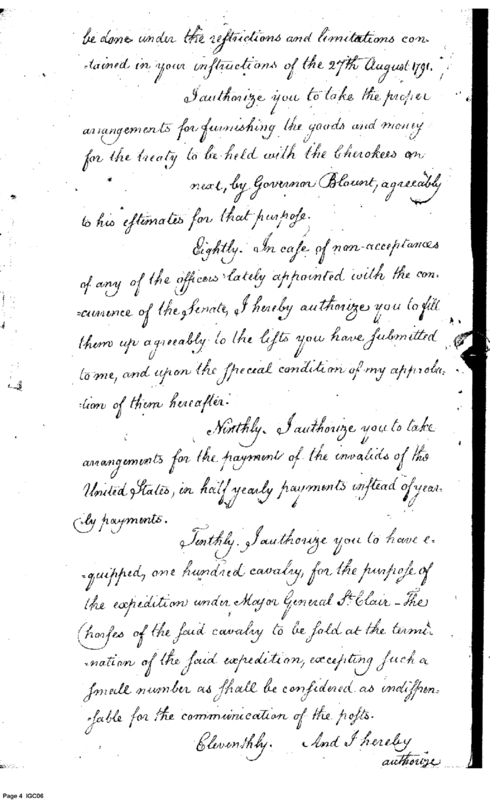 be done under the restrictions and limitations con-
-tained in your instructions of the 27th August 1791.
I authorize you to take the proper
arrangements for furnishing the goods and money
for the treaty to be held with the Cherokees on
next, by Governor Blount, agreeably
to his estimates for that purpose.
Eightly. In case of non-acceptances
of any of the officers lately appointed with the con-
-currence of the Senate, I hereby authorize you to fill
them up agreeably to the lists you have submitted
to me, and upon the special condition of my approba-
-tion of them hereafter.
Ninthly. I authorize you to take
arrangements for the payment of the invalids of the
United States, in half yearly payments instead of year-
-ly payments.
Tenthly. I authorize you to have e-
-quipped, one hundred cavalry, for the purpose of
the expedition under Major General St. Clair - The
horses of the said cavalry to be sold at the termi-
-nation of the said expedition, excepting such a
small number as shall be considered as indispen-
-sable for the communication of the posts.
Eleventhly. And I hereby
authorize
Page 4 IGC06